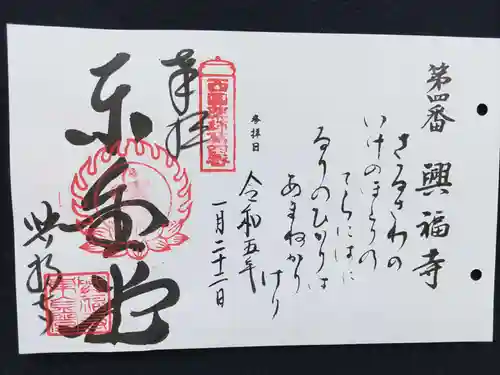 第四番
興福寺
さるさわの
いけのほとりの
てらにはに
るりのひかりは
あまねかり
けり
参拝日
令和五年
一月二十二日
奉拝
東金堂
興福寺